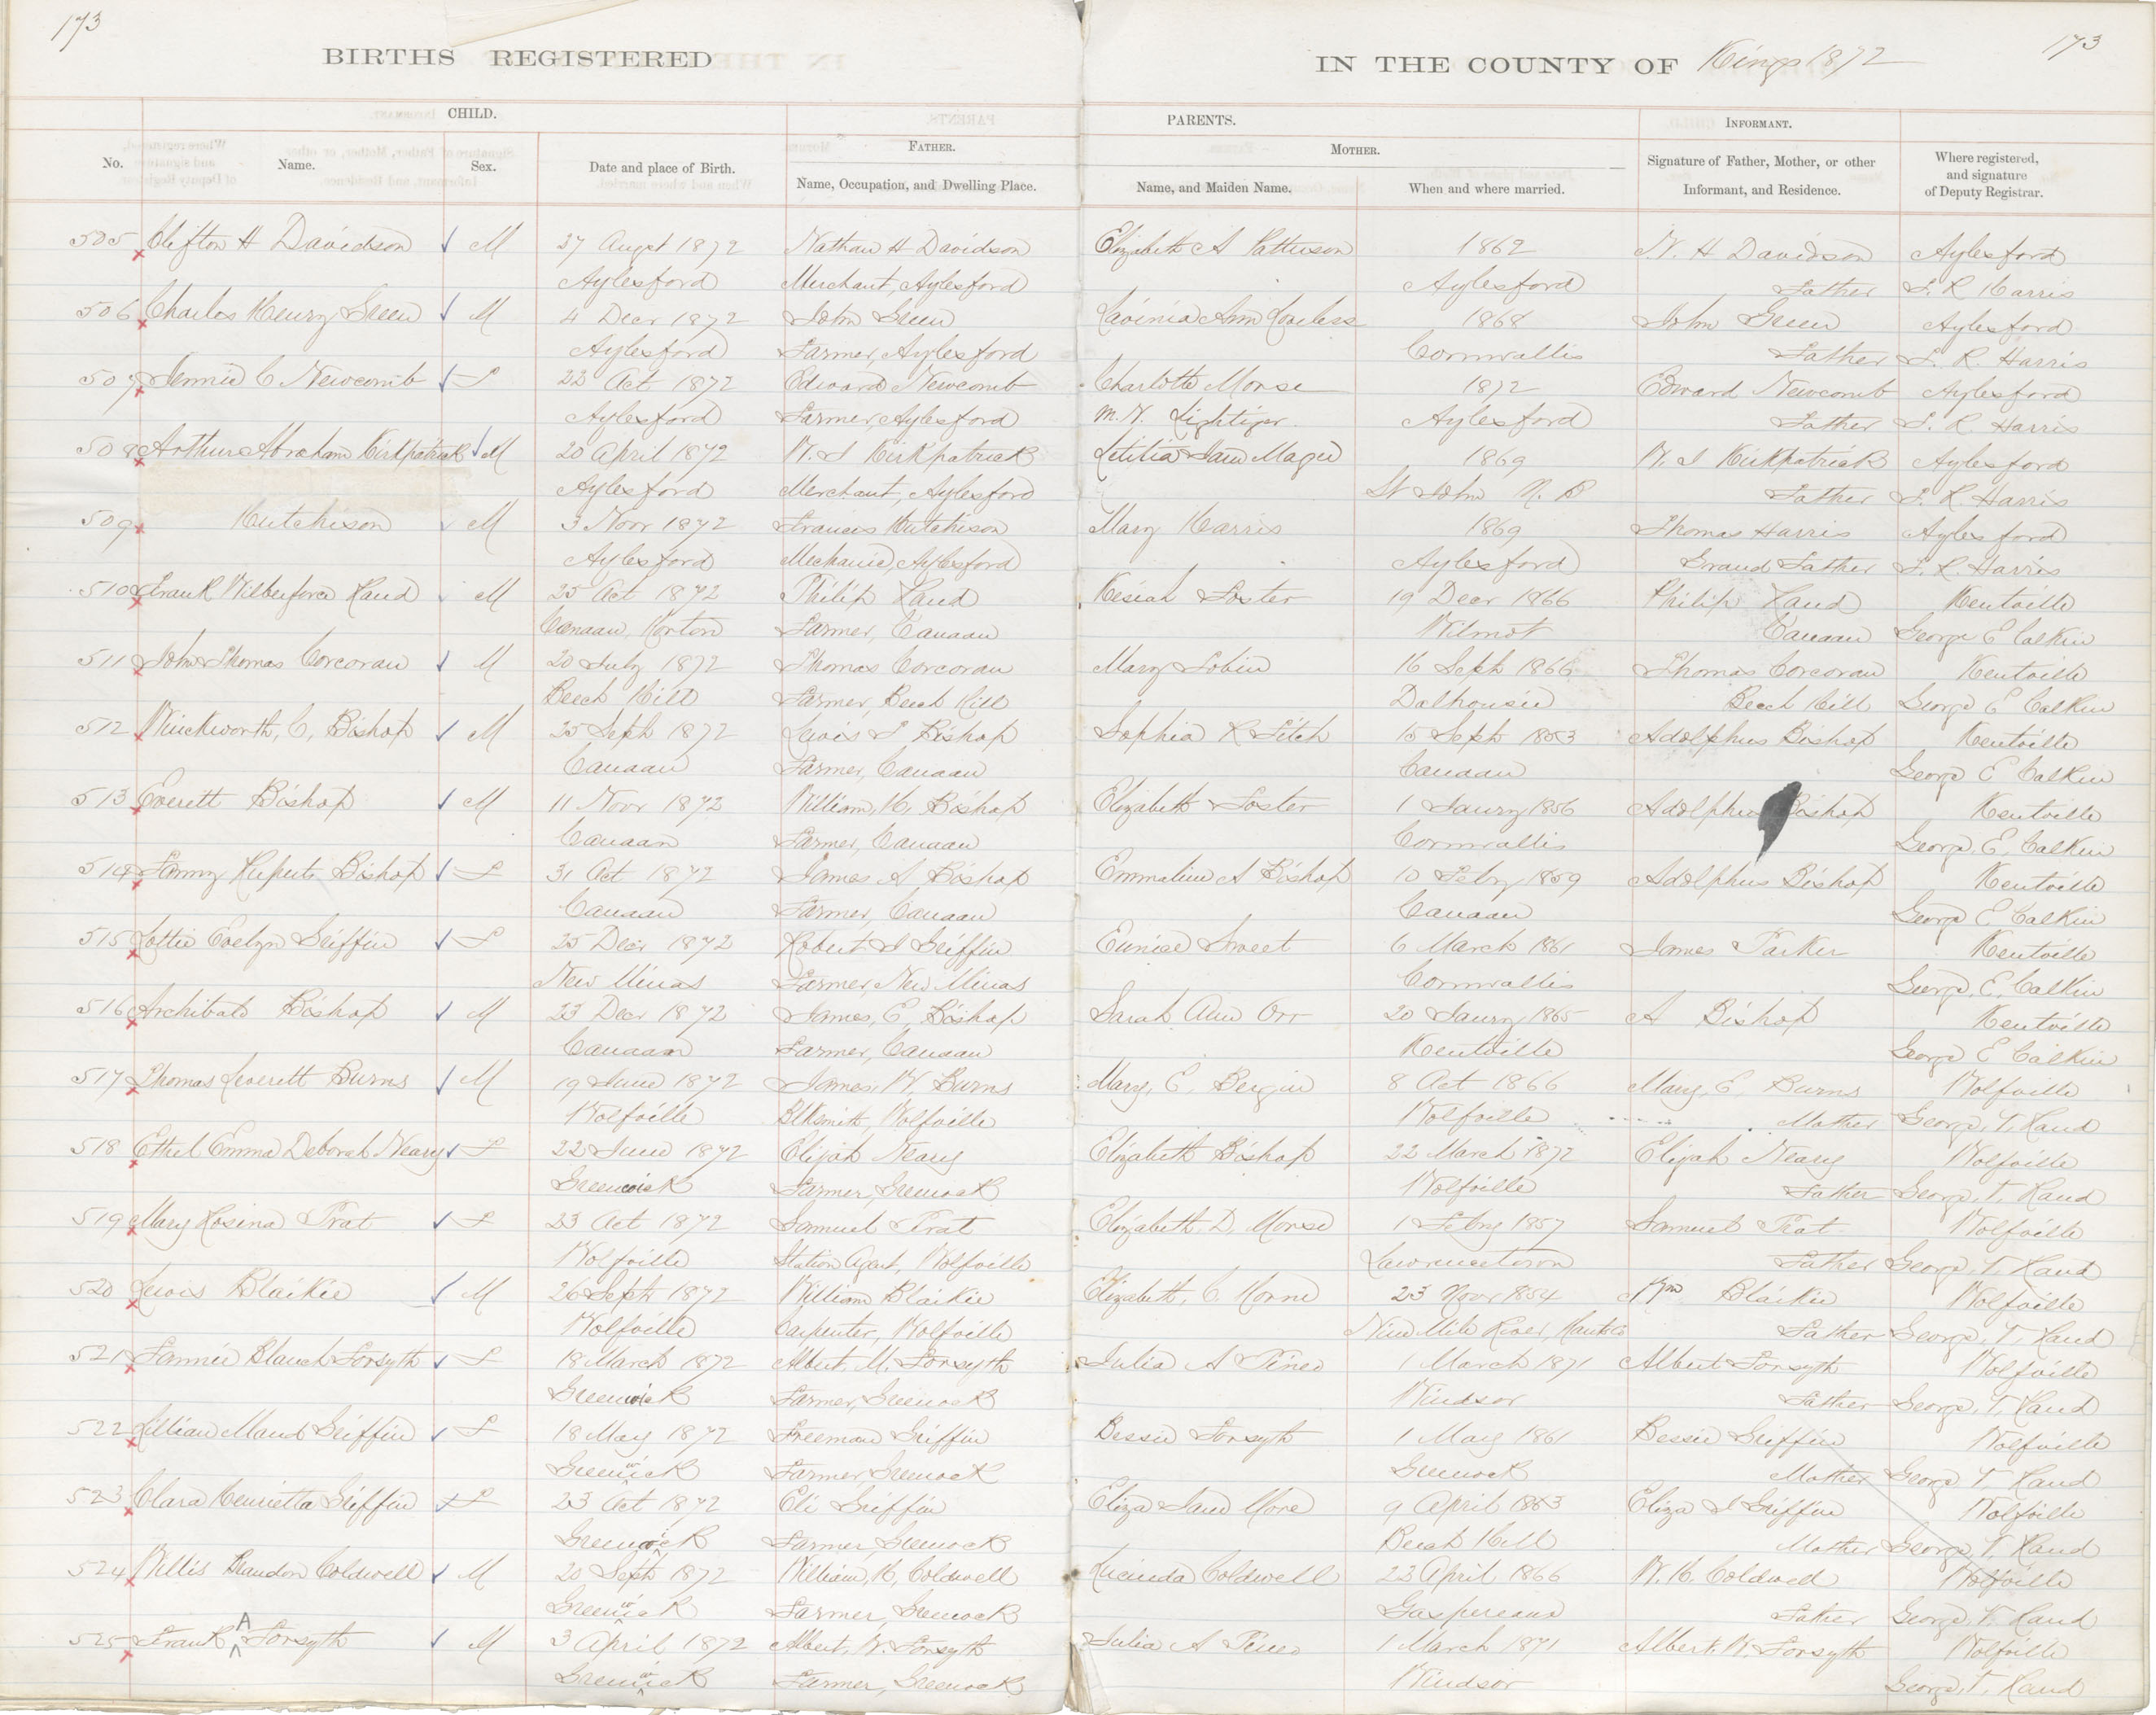 173
173
BIRTHS REGISTERED
IN THE COUNTY OF Kings 1872
CHILD.
PARENTS.
INFORMANT.
No. Name. Sex. Date and place of Birth.
FATHER.
Name, Occupation, and Dwelling Place.
MOTHER.
Name, and Maiden Name. When and where married.
Signature of Father, Mother, or other
Informant, and Residence.
Where registered,
and signature
of Deputy Registrar.
505 Clifton H Davidson M 27 Augst 1872 Nathan H Davidson Elizabeth A Patterson 1862 N. H Davidson Aylesford
Aylesford Merchant, Aylesford Aylesford Father L. R Harris
506 Charles Henry Green M 4 Decr 1872 John Green Lavinia Ann Loveless 1868 John Green Aylesford
Aylesford Farmer, Aylesford Cornwallis Father L. R. Harris
507 Jennie C Newcomb F 22 Oct 1872 Edward Newcomb Charlotte Morse 1872 Edward Newcomb Aylesford
Aylesford Farmer, Aylesford M.N. Aylesford Father L. R Harris
508 Arthur Abraham Kirkpatrick M 20 April 1872 W. J Kirkpatrick Letitia Jane Magee 1869 W. J Kirkpatrick Aylesford
Aylesford Merchant, Aylesford St John N. B Father L. R. Harris
509 Hutchison M 3 Novr 1872 Francis Hutchison Mary Harris 1869 Thomas Harris Aylesford
Aylesford Mechanic, Aylesford Aylesford Grand Father L. R. Harris
510 Frank Wilberforce Rand M 25 Oct 1872 Philip Rand Kesiah Foster 19 Decr 1866 Philip Rand Kentville
Canaan, Horton Farmer, Canaan Wilmot Canaan George E Calkin
511 John Thomas Corcoran M 20 July 1872 Thomas Corcoran Mary Tobin 16 Sept 1866 Thomas Corcoran Kentville
Beech Hill Farmer, Beech Hill Dalhousie Beech Hill George E Calkin
512 Winckworth, C, Bishop M 25 Sept 1872 Lewis J Bishop Sophia R Fitch 15 Sept 1853 Adolphus Bishop Kentville
Canaan Farmer, Canaan Canaan George E Calkin
513 Everett Bishop M 11 Novr 1872 William, H, Bishop Elizabeth Foster 1 Janry 1856 Adolphus Bishop Kentville
Canaan Farmer, Canaan Cornwallis George E, Calkin
514 Fanny Bishop F 31 Oct 1872 James A Bishop Emmaline A Bishop 10 Feby 1859 Adolphus Bishop Kentville
Canaan Farmer, Canaan Canaan George E Calkin
515 Lottie Evelyn Griffin F 25 Decr 1872 Robert J Griffin Eunice Sweet 6 March 1861 James Parker Kentville
New Minas Farmer, New Minas Cornwallis George, E, Calkin
516 Archibald Bishop M 23 Decr 1872 James, E, Bishop Sarah Ann Orr 20 Janry 1865 A Bishop Kentville
Canaan Farmer, Canaan Kentville George E Calkin
517 Thomas Leverett Burns M 19 June 1872 James, W. Burns Mary, E, Bergin 8 Oct 1866 Mary, E, Burns Wolfville
Wolfville Blksmith, Wolfville Wolfville Mother George, T, Rand
518 Ethel Emma Deborah Neary F 22 June 1872 Elijah Neary Elizabeth Bishop 22 March 1872 Elijah Neary Wolfville
Greenwick Farmer, Greenock Wolfville Father George, T, Rand
519 Mary Rosina Prat F 23 Oct 1872 Samuel Prat Elizabeth, D, Morse 1 Feby 1857 Samuel Prat Wolfville
Wolfville Station Agent, Wolfville Lawrencetown Father George, T, Rand
520 Lewis Blaikie M 26 Sept 1872 William Blaikie Elizabeth, C. Horne 23 Novr 1854 Wm Blaikie Wolfville
Wolfville Carpenter, Wolfville Nine Mile River, Hants Co Father George, T, Rand
521 Fannie Blanch Forsyth F 18 March 1872 Albert, M, Forsyth Julia A Pineo 1 March 1871 Albert Forsyth Wolfville
Greenwick Farmer, Greenock Windsor Father George, T, Rand
522 Lillian Maud Griffin F 18 May 1872 Freeman Griffin Bessie Forsyth 1 May 1861 Bessie Griffin Wolfville
Greenwick Farmer Greenock Greenock Mother George T, Rand
523 Clara Henrietta Griffin F 23 Oct 1872 Eli Griffin Eliza Jane More 9 April 1863 Eliza J Griffin Wolfville
Greenwick Farmer, Greenock Beach Hill Mother George, T, Rand
524 Willis Brandon Coldwell M 20 Sept 1872 William, H, Coldwell Lucinda Coldwell 23 April 1866 W. H. Coldwell Wolfville
Greenwick Farmer, Greenock Gaspereaux Father George, T, Rand
525 Frank A Forsyth M 3 April 1872 Albert, W. Forsyth Julia A Pineo 1 March 1871 Albert. W. Forsyth Wolfville
Greenwick Farmer, Greenock Windsor George, T, Rand